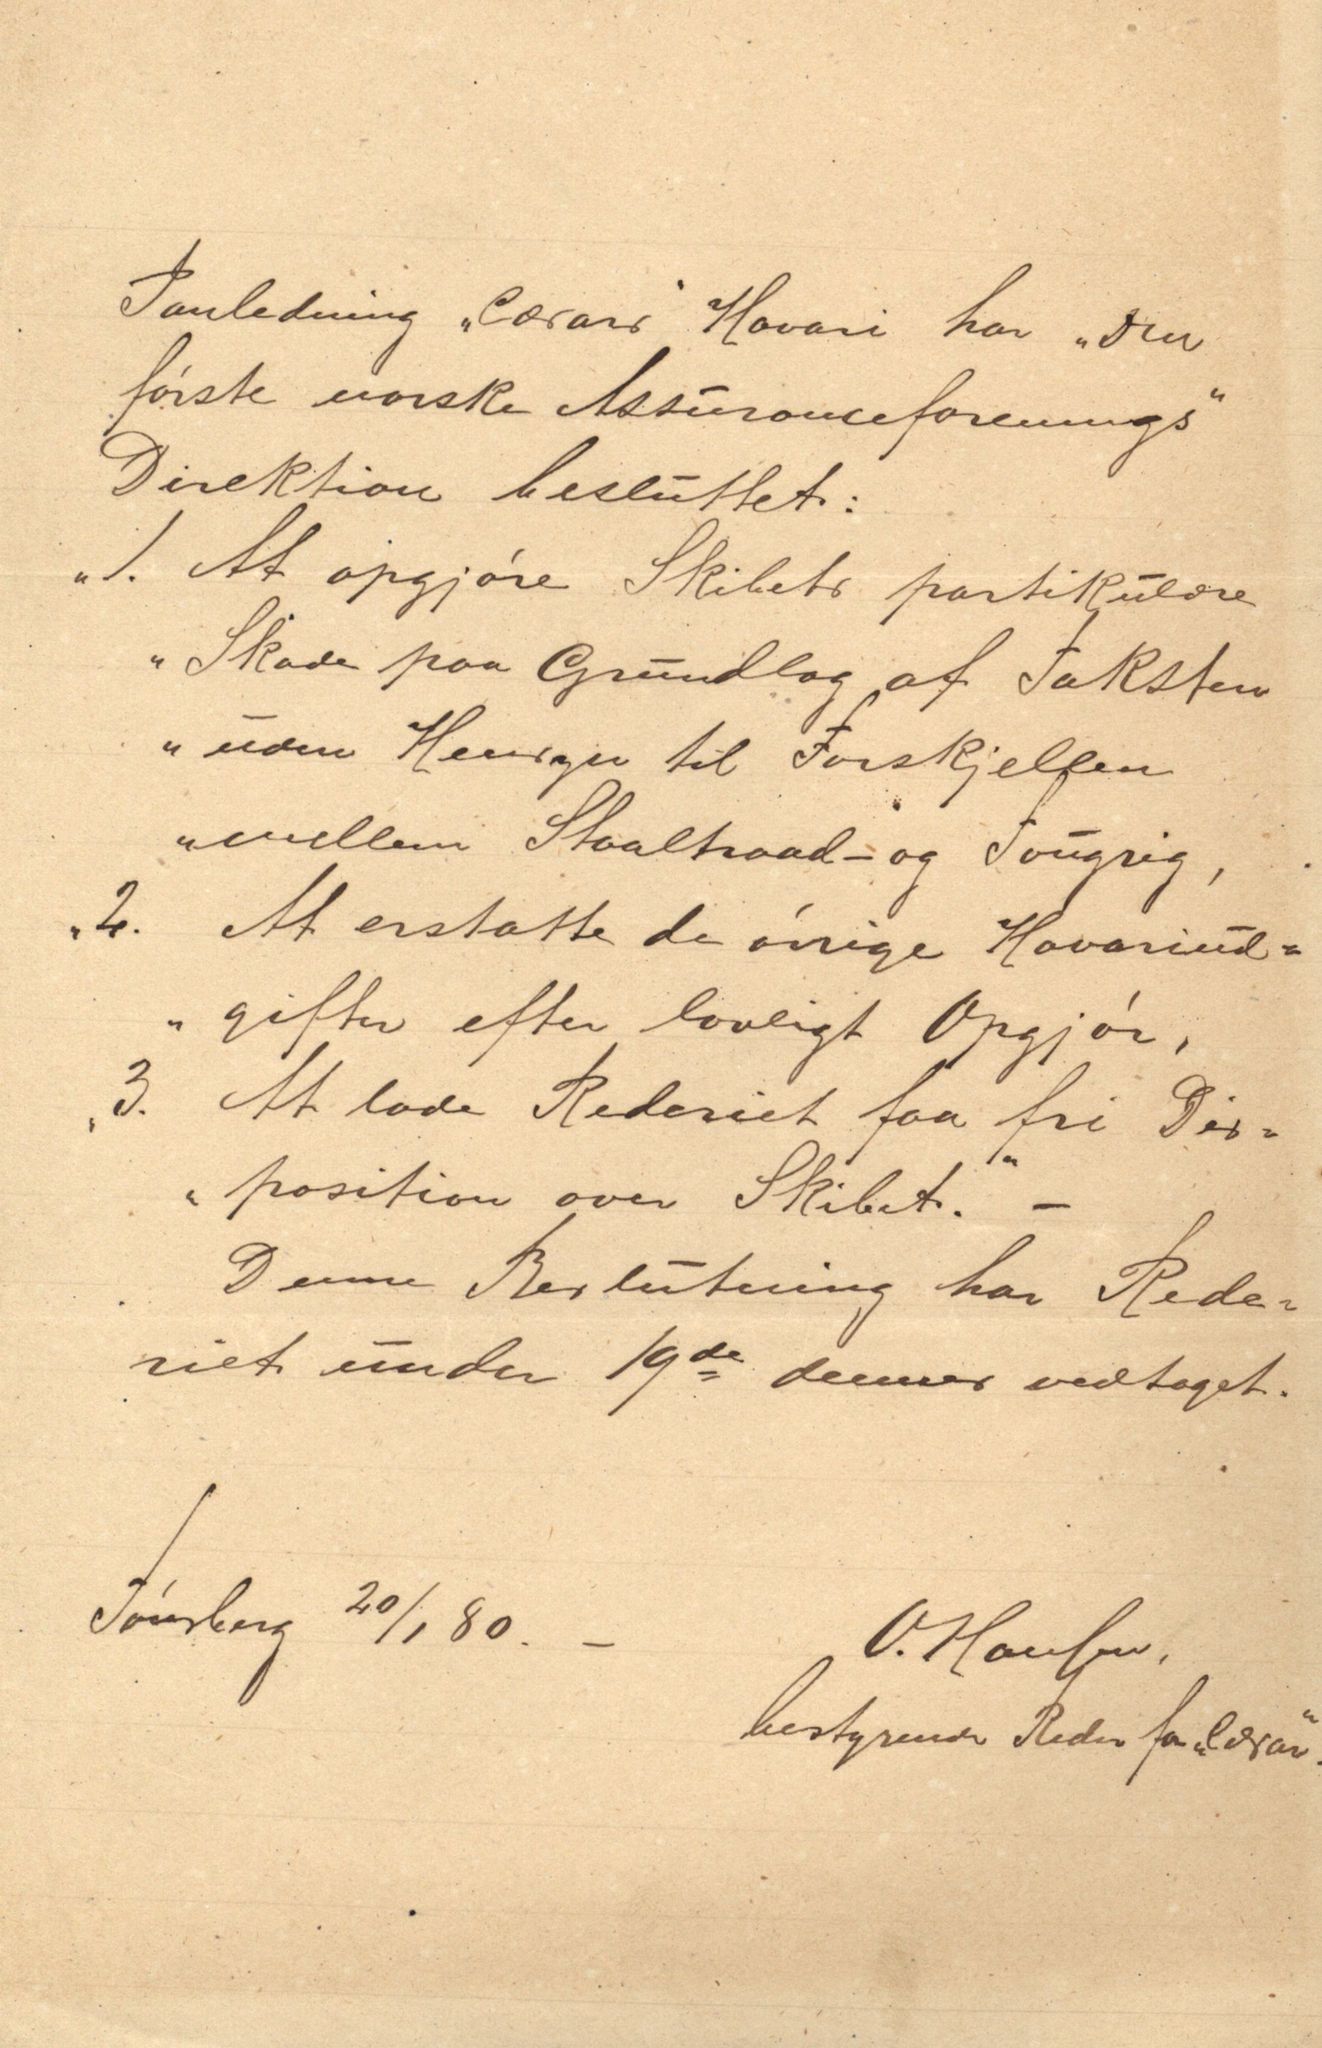 Ianledning „Cæsars" Havari har „Den
første norske Assuranceforenings"
Direktion besluttet:
„1. At opgjøre Skibets partikulære
„Skade paa Grundlag af Taksten
„uden Hensyn til Forskjellen
„mellem Staaltraad- og Tougrig,
„2. At erstatte de øvrige Havariud=
„gifter efter lovligt Opgjør,
„3. At lade Rederiet faa fri Dis=
„position over Skibet." —
Denne Beslutning har Rede=
riet under 19de dennes vedtaget.
Tønsberg 20/1 80. —
O. Hansen,
bestyrende Reder for „Cæsar".